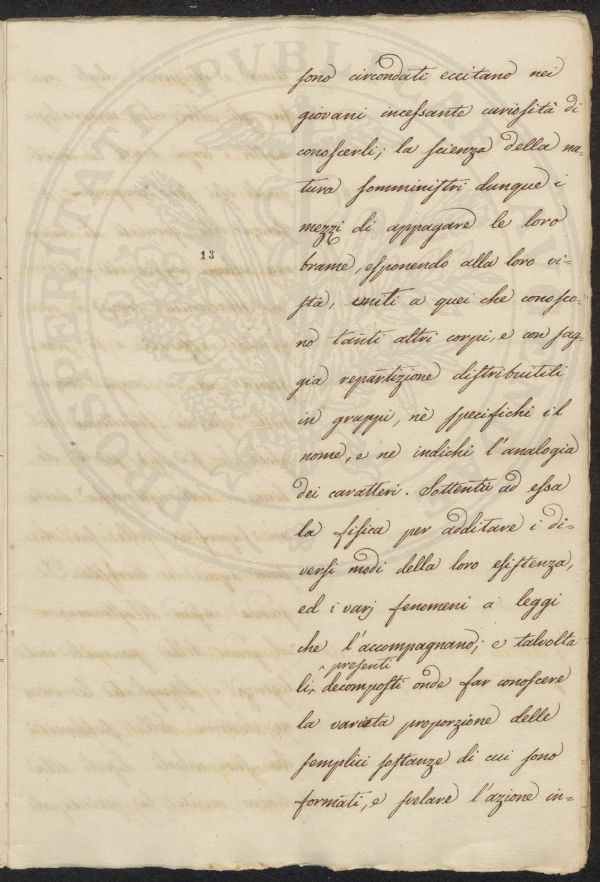 sono circondati eccitano nei
giovani incessante curiosità di
conoscerli; la scienza della na=
tura somministri dunque i
mezzi di appagare le loro
brame, esponendo alla loro vi=
sta, uniti a quei che conosco=
no tanti altri corpi, e con sag=
gia repartizione distribuitili
in gruppi, nè specifichi il
nome, e ne indichi l'analogia
dei caratteri. Sottentri ad essa
la fisica per additare i di=
versi modi della loro esistenza,
ed i varj fenomeni a leggi
che l'accompagnano; e talvolta
presenti
li, decomposti onde far conoscere
la variata proporzione delle
semplici sostanze di cui sono
formati, e svelare l'azione in=
13
PROSPERITATI PVBLICAE